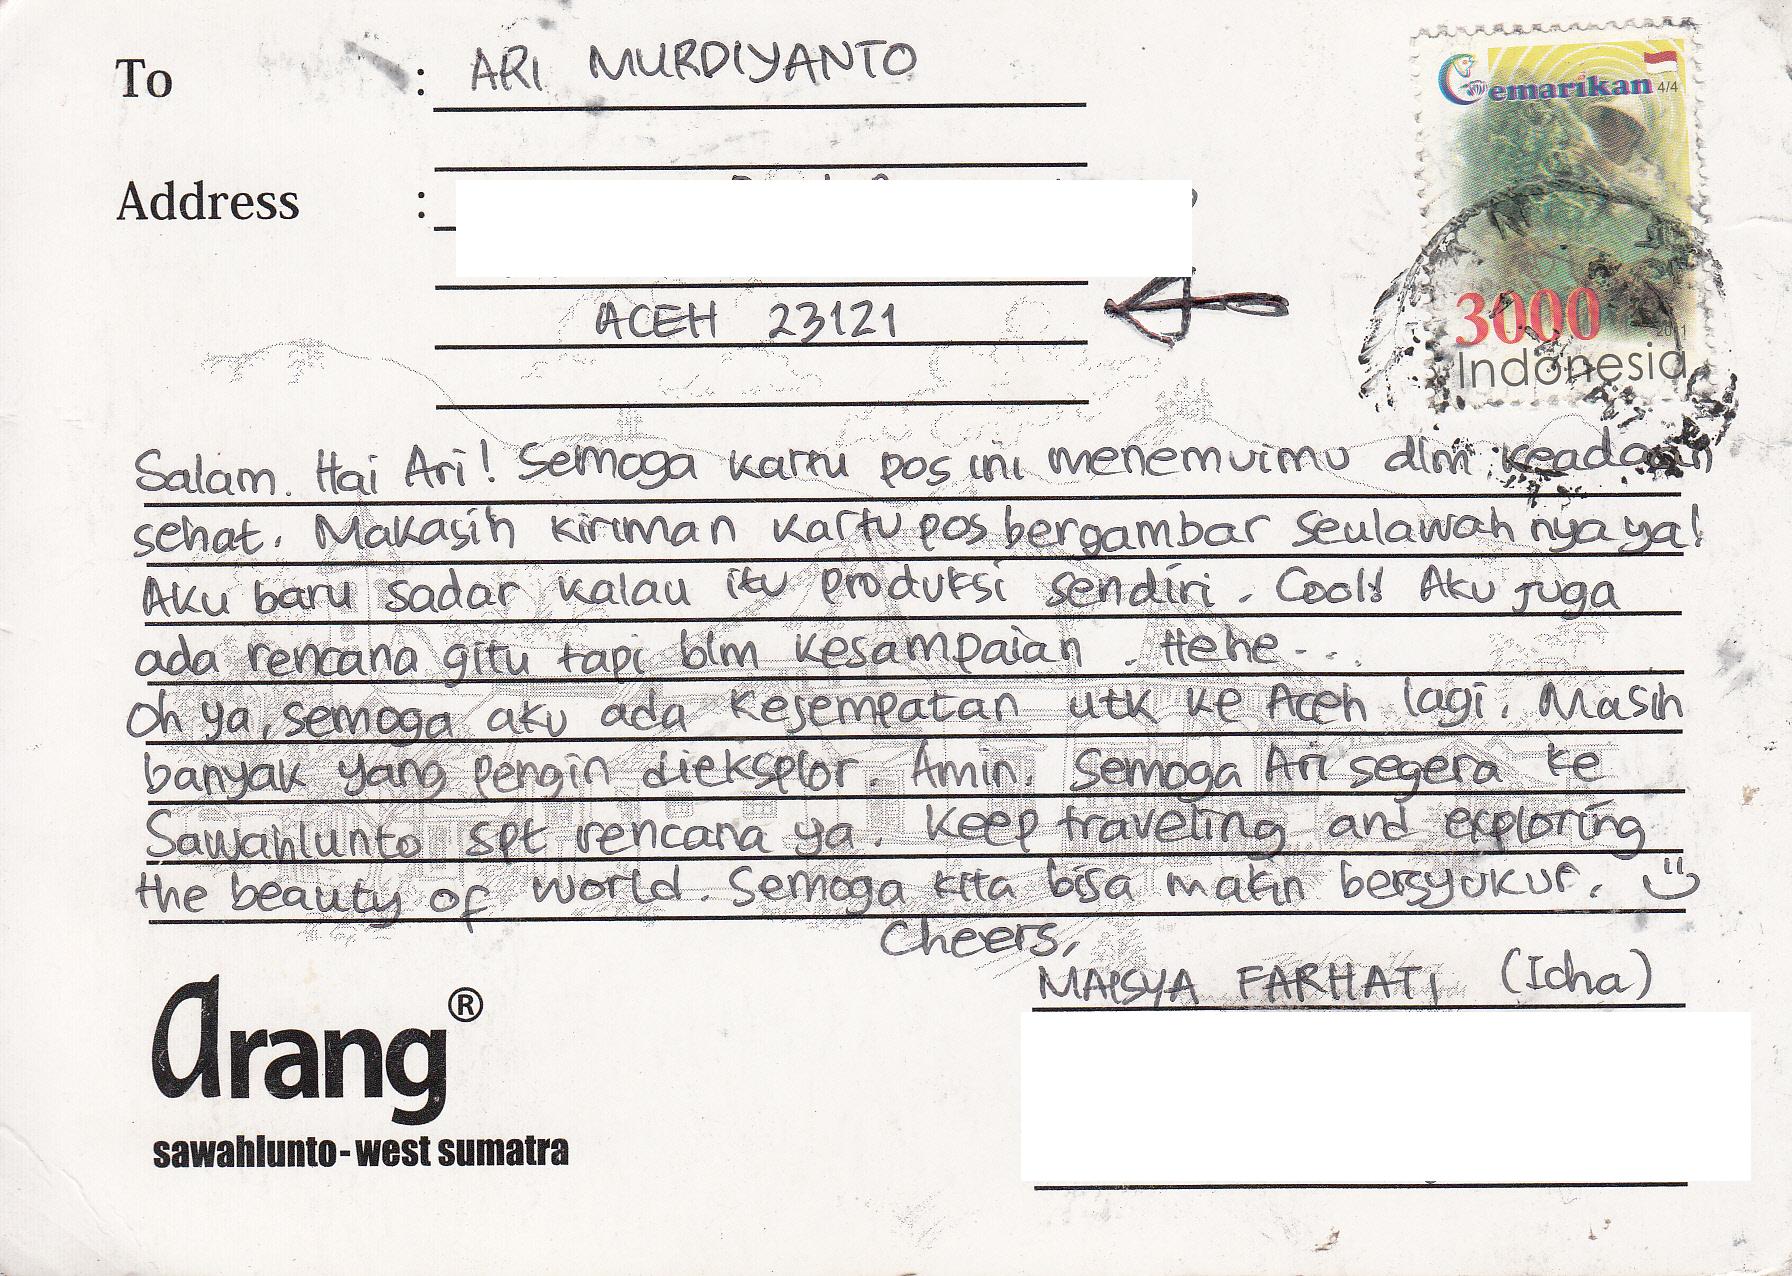 To : ARI MURDIYANTO
Address :
ACEH 23121
Gemarikan 4/4
3000
2011
Indonesia
Salam. Hai Ari! Semoga kartu pos ini menemuimu dlm keadaan
sehat. Makasih kiriman kartu pos bergambar seulawah nya ya!
Aku baru sadar kalau itu produksi sendiri. Cool! Aku juga
ada rencana gitu tapi blm kesampaian. Hehe...
Oh ya, semoga aku ada kesempatan utk ke Aceh lagi. Masih
banyak yang pengin dieksplor. Amin. Semoga Ari segera ke
Sawahlunto spt rencana ya. Keep traveling and exploring
the beauty of world. Semoga kita bisa makin bersyukur.
Cheers,
MAISYA FARHATI (Icha)
arang®
sawahlunto-west sumatra